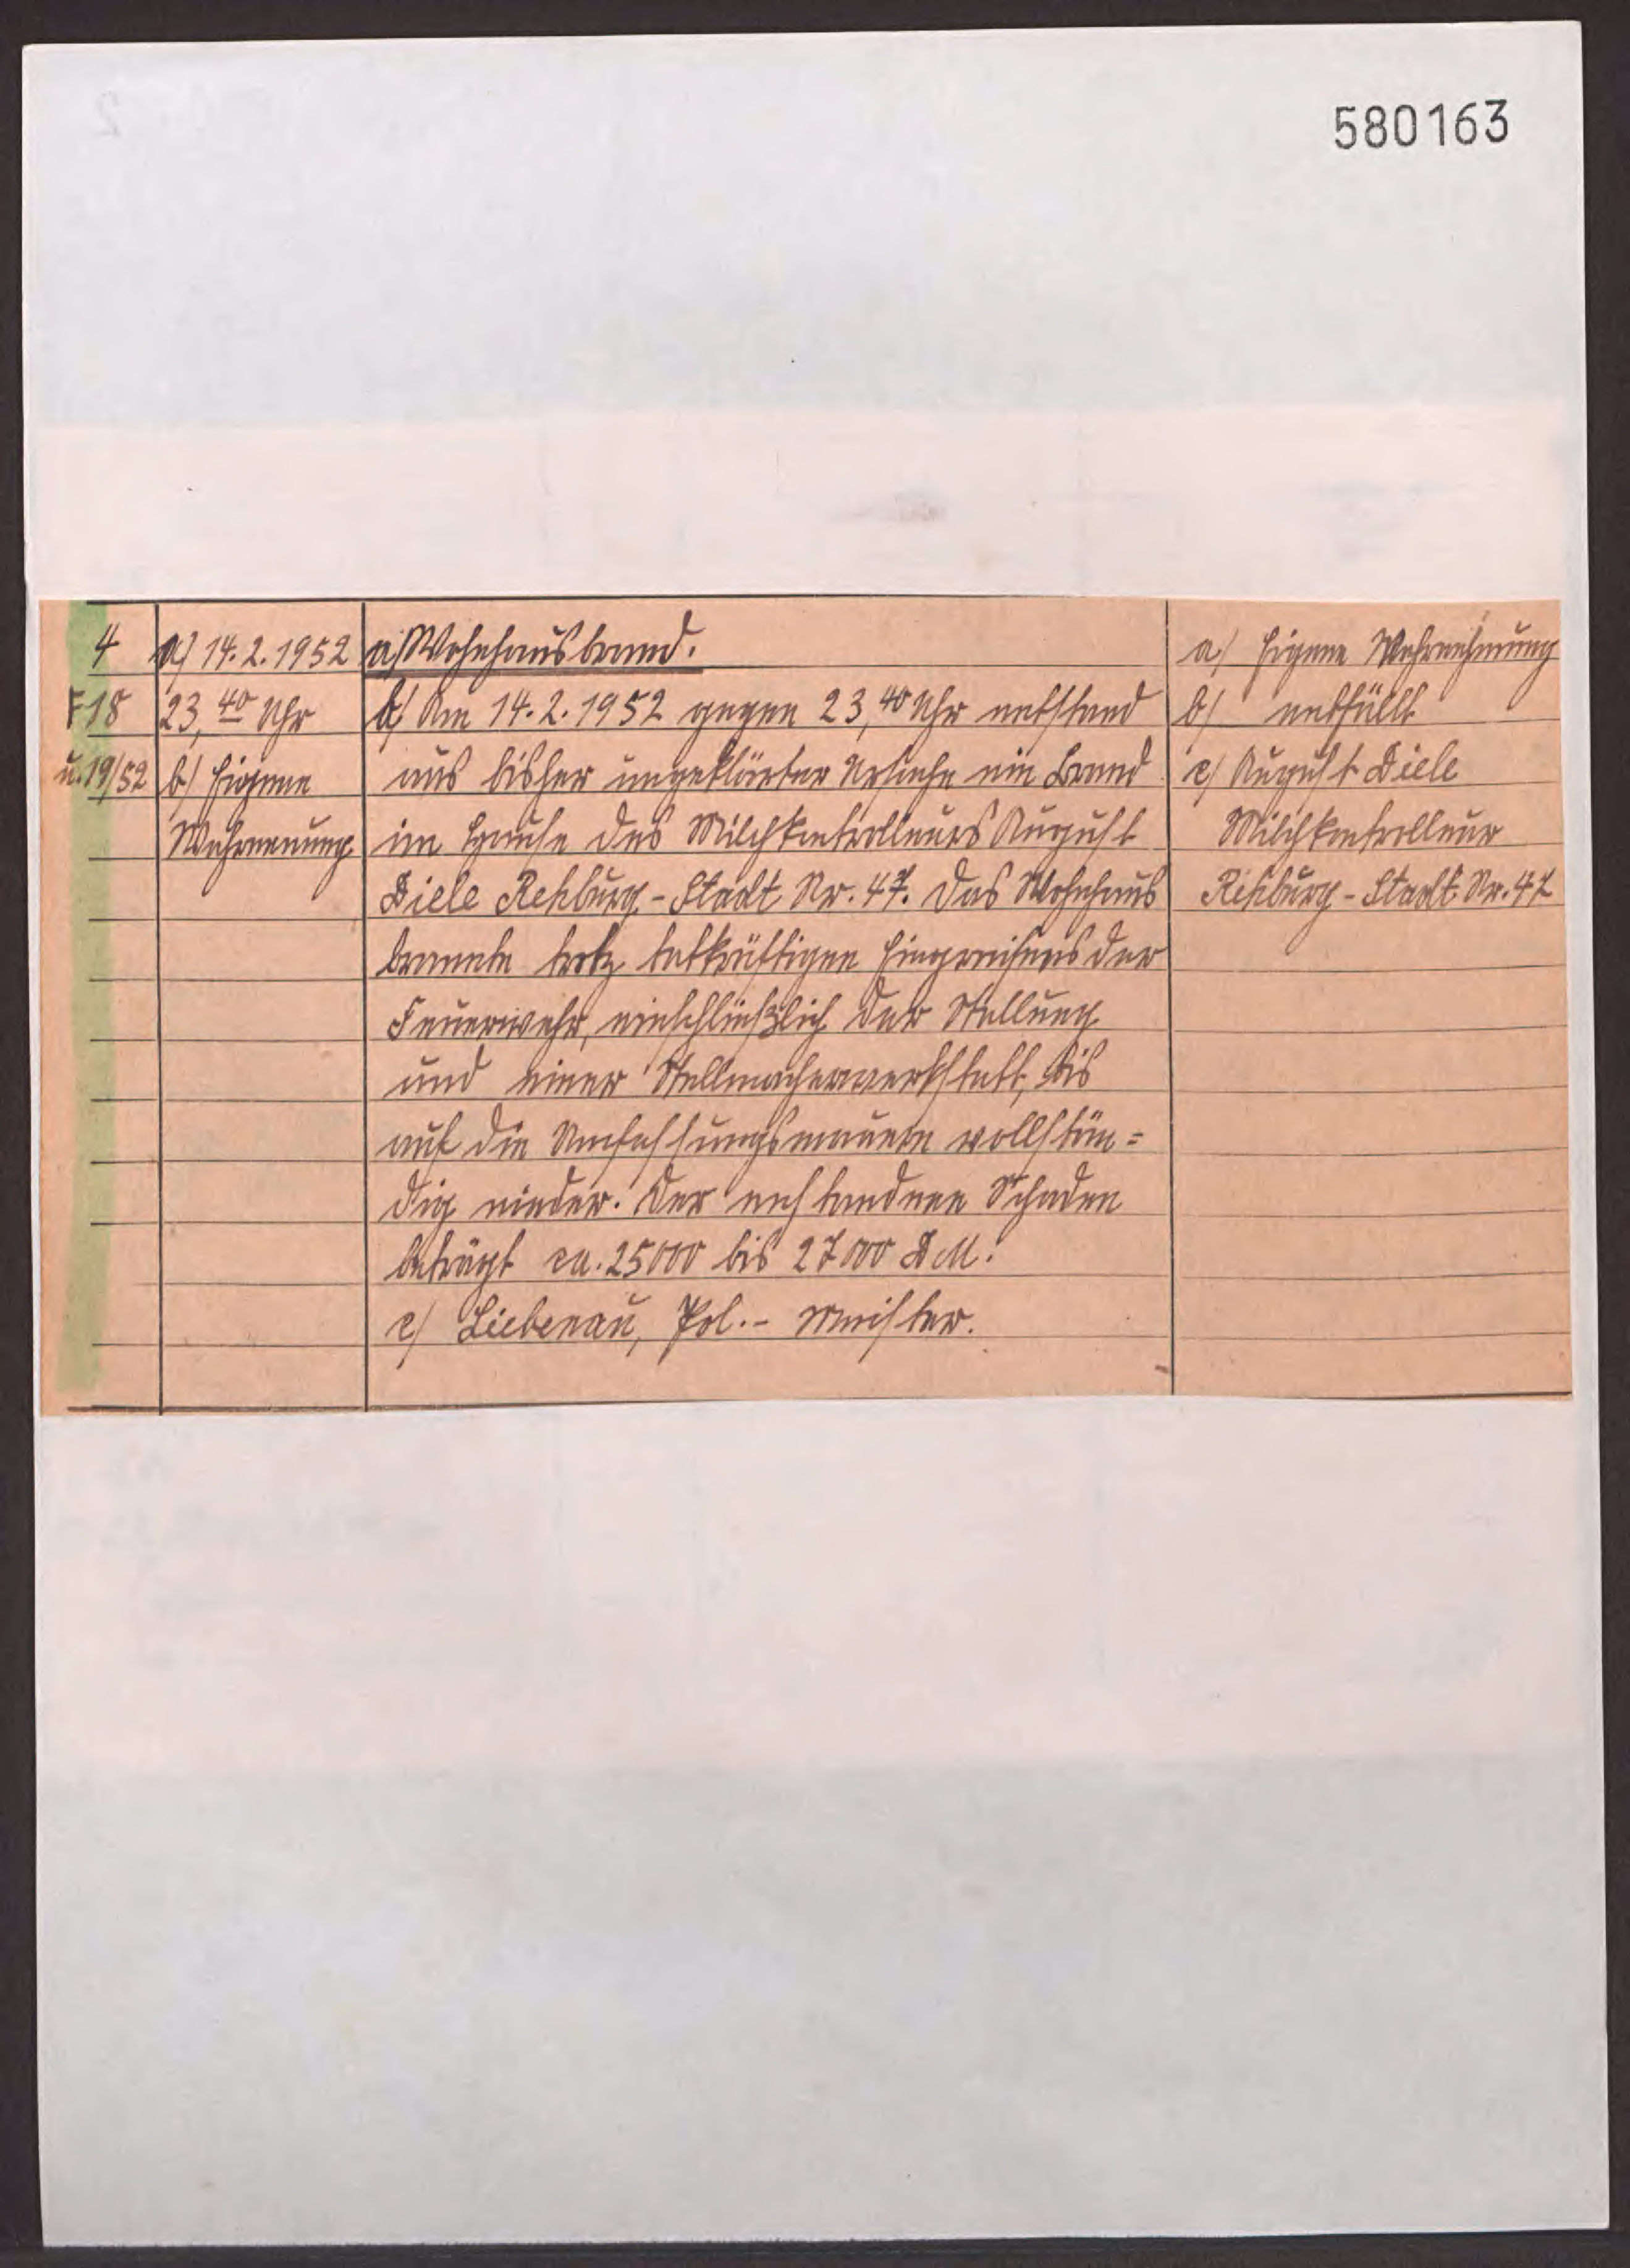 580163
4
F 18
u. 19/52
a/ 14.2.1952
23,40 Uhr
b/ Eigene
Wahrnenung
a/ Wohnhausbrand.
b/ Am 14.2.1952 gegen 23,40 Uhr entstand
aus bisher ungeklärter Ursache ein Brand
im Hause des Milchkontrolleurs August
Diele Rehburg-Stadt Nr. 47. Das Wohnhaus
brannte trotz tatkräftigen Eingreifens der
Feuerwehr, einschließlich der Stallung
und einer Stellmacherwerkstatt, bis
auf die Umfassungsmauern vollstän=
dig nieder. Der enstandene Schaden
beträgt ca. 25000 bis 27000 DM.
c/ Liebenau, Pol.- Meister.
a/ Eigene Wahrnehmung
b/ entfällt
c/ August Diele
Milchkontrolleur
Rehburg-Stadt Nr. 47